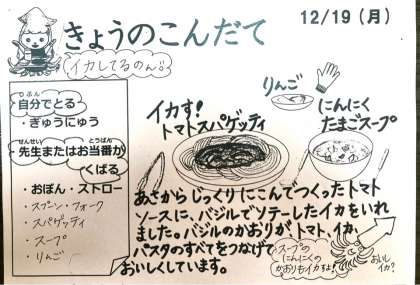 きょうのこんだて
12/19（月）
イカしてるのん♪
自分でとる
じぶん
・ぎゅうにゅう
先生またはお当番が
せんせい
とうばん
くばる
・おぼん・ストロー
・スプーン・フォーク
・スパゲッティ
・スープ
・りんご
イカす！
トマトスパゲッティ
りんご
にんにく
たまごスープ
あさからじっくりにこんでつくったトマト
ソースに、バジルでソテーしたイカをいれ
ました。バジルのかおりがトマト、イカ、
パスタのすべてをつなげて
おいしくしています。
スープの
にんにくの
かおりもイカすよ！
おいし
イカ？